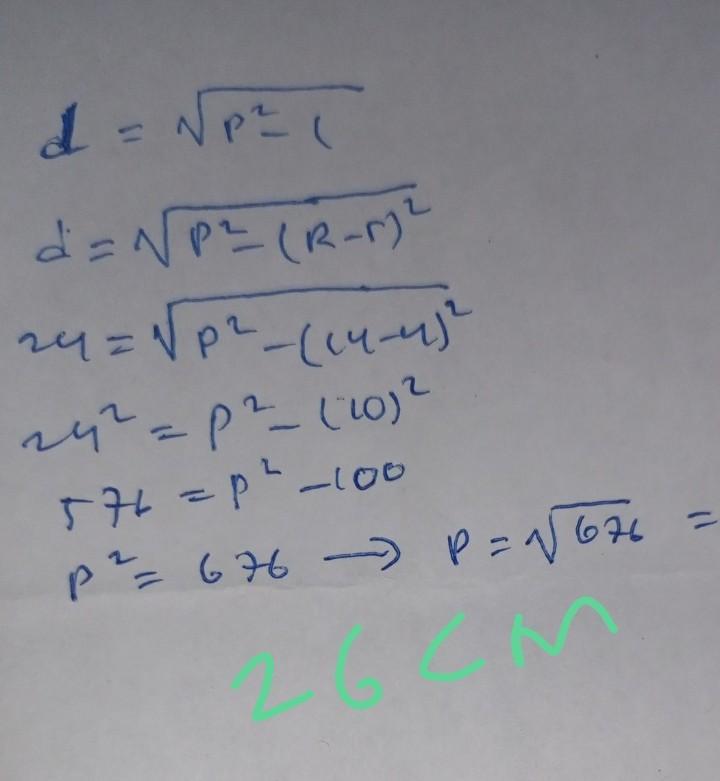 d = √p² - (
d = √p² - (R-r)²
24 = √p² - (14-4)²
24² = p² - (10)²
576 = p² - 100
p² = 676 → p = √676 =
26 CM